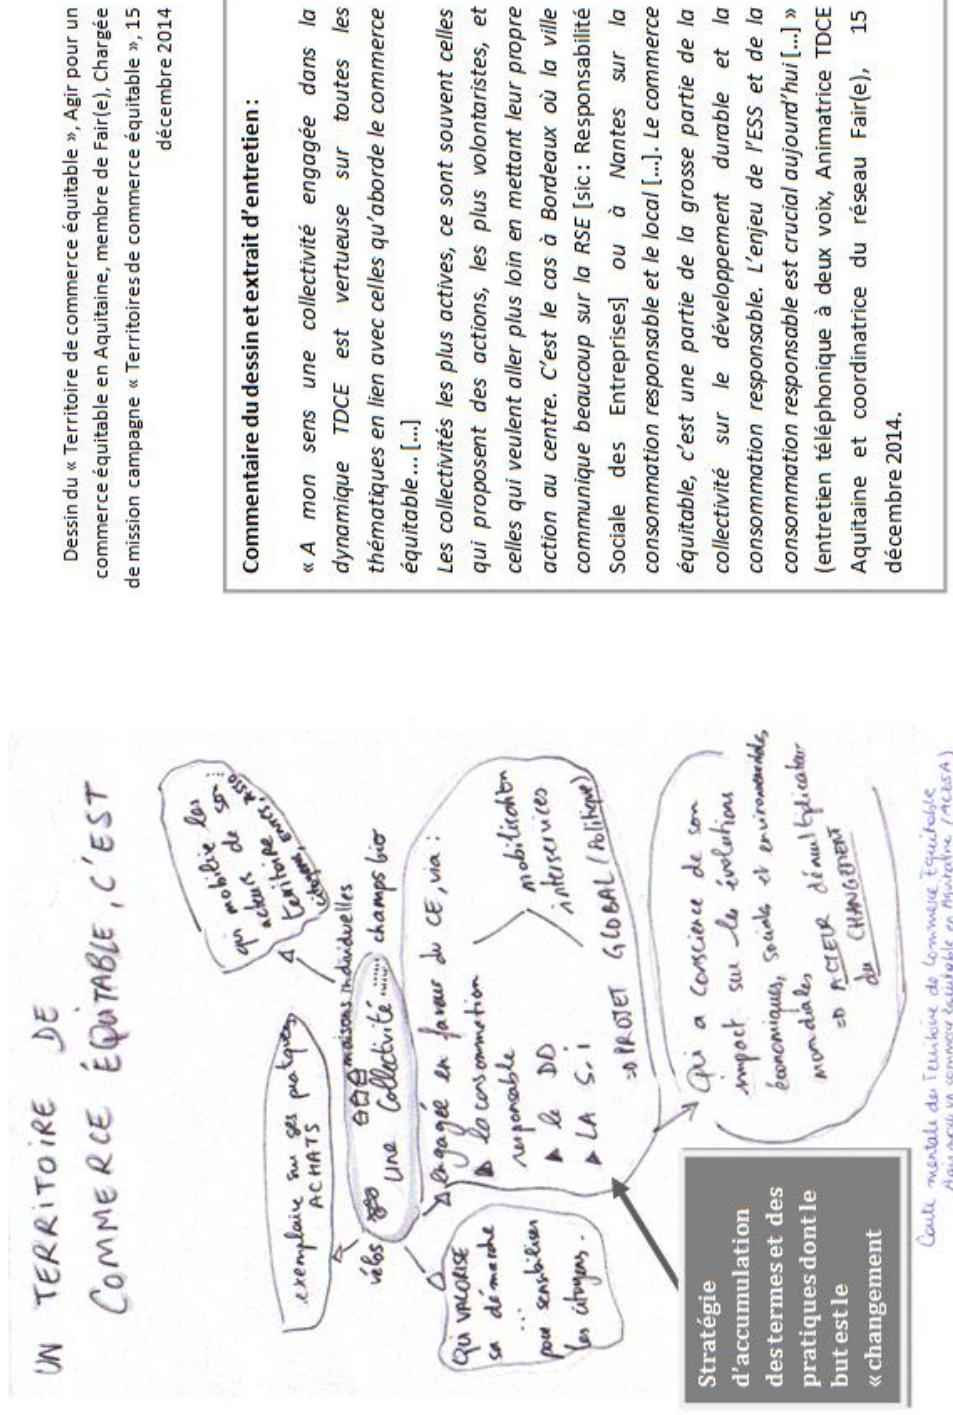 UN TERRITOIRE DE
COMMERCE ÉQUITABLE, C'EST
exemplaire sur ses pratiques
ACHATS
qui mobilise les
acteurs de son
territoire :
citoyens, entr., asso
vélos
maisons individuelles
Une Collectivité
champs bio
Qui VALORISE
sa démarche
...
pour sensibiliser
les citoyens.
engagée en faveur du CE, via :
la consommation
responsable
le DD
LA S.I
mobilisation
interservices
=> PROJET GLOBAL (Politique)
Qui a conscience de son
impact sur les évolutions
économiques, sociales et environnementales
mondiales
=> ACTEUR démultiplicateur
du CHANGEMENT
Stratégie
d'accumulation
des termes et des
pratiques dont le
but est le
« changement
Carte mentale du Territoire de Commerce Equitable
commerce équitable en Aquitaine (ACESA)
Dessin du « Territoire de commerce équitable », Agir pour un
commerce équitable en Aquitaine, membre de Fair(e), Chargée
de mission campagne « Territoires de commerce équitable », 15
décembre 2014
Commentaire du dessin et extrait d'entretien :
« A mon sens une collectivité engagée dans la
dynamique TDCE est vertueuse sur toutes les
thématiques en lien avec celles qu'aborde le commerce
équitable... [...]
Les collectivités les plus actives, ce sont souvent celles
qui proposent des actions, les plus volontaristes, et
celles qui veulent aller plus loin en mettant leur propre
action au centre. C'est le cas à Bordeaux où la ville
communique beaucoup sur la RSE [sic : Responsabilité
Sociale des Entreprises] ou à Nantes sur la
consommation responsable et le local [...]. Le commerce
équitable, c'est une partie de la grosse partie de la
collectivité sur le développement durable et la
consommation responsable. L'enjeu de l'ESS et de la
consommation responsable est crucial aujourd'hui [...] »
(entretien téléphonique à deux voix, Animatrice TDCE
Aquitaine et coordinatrice du réseau Fair(e), 15
décembre 2014.